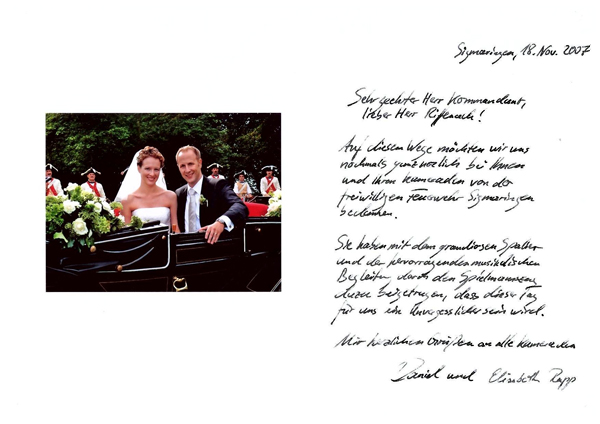 Sigmaringen, 18. Nov. 2007
Sehr geehrter Herr Kommandant,
lieber Herr !
Auf diesem Wege möchten wir uns
nochmals ganz herzlich bei Ihnen
und Ihren Kameraden von der
freiwilligen Feuerwehr Sigmaringen
bedanken.
Sie haben mit dem grandiosen Spalier
und der hervorragenden musikalischen
Begleitung durch den Spielmannszug
dazu beigetragen, dass dieser Tag
für uns ein Unvergesslicher sein wird.
Mit herzlichen Grüßen an alle Kameraden
Daniel und Elisabeth Rapp